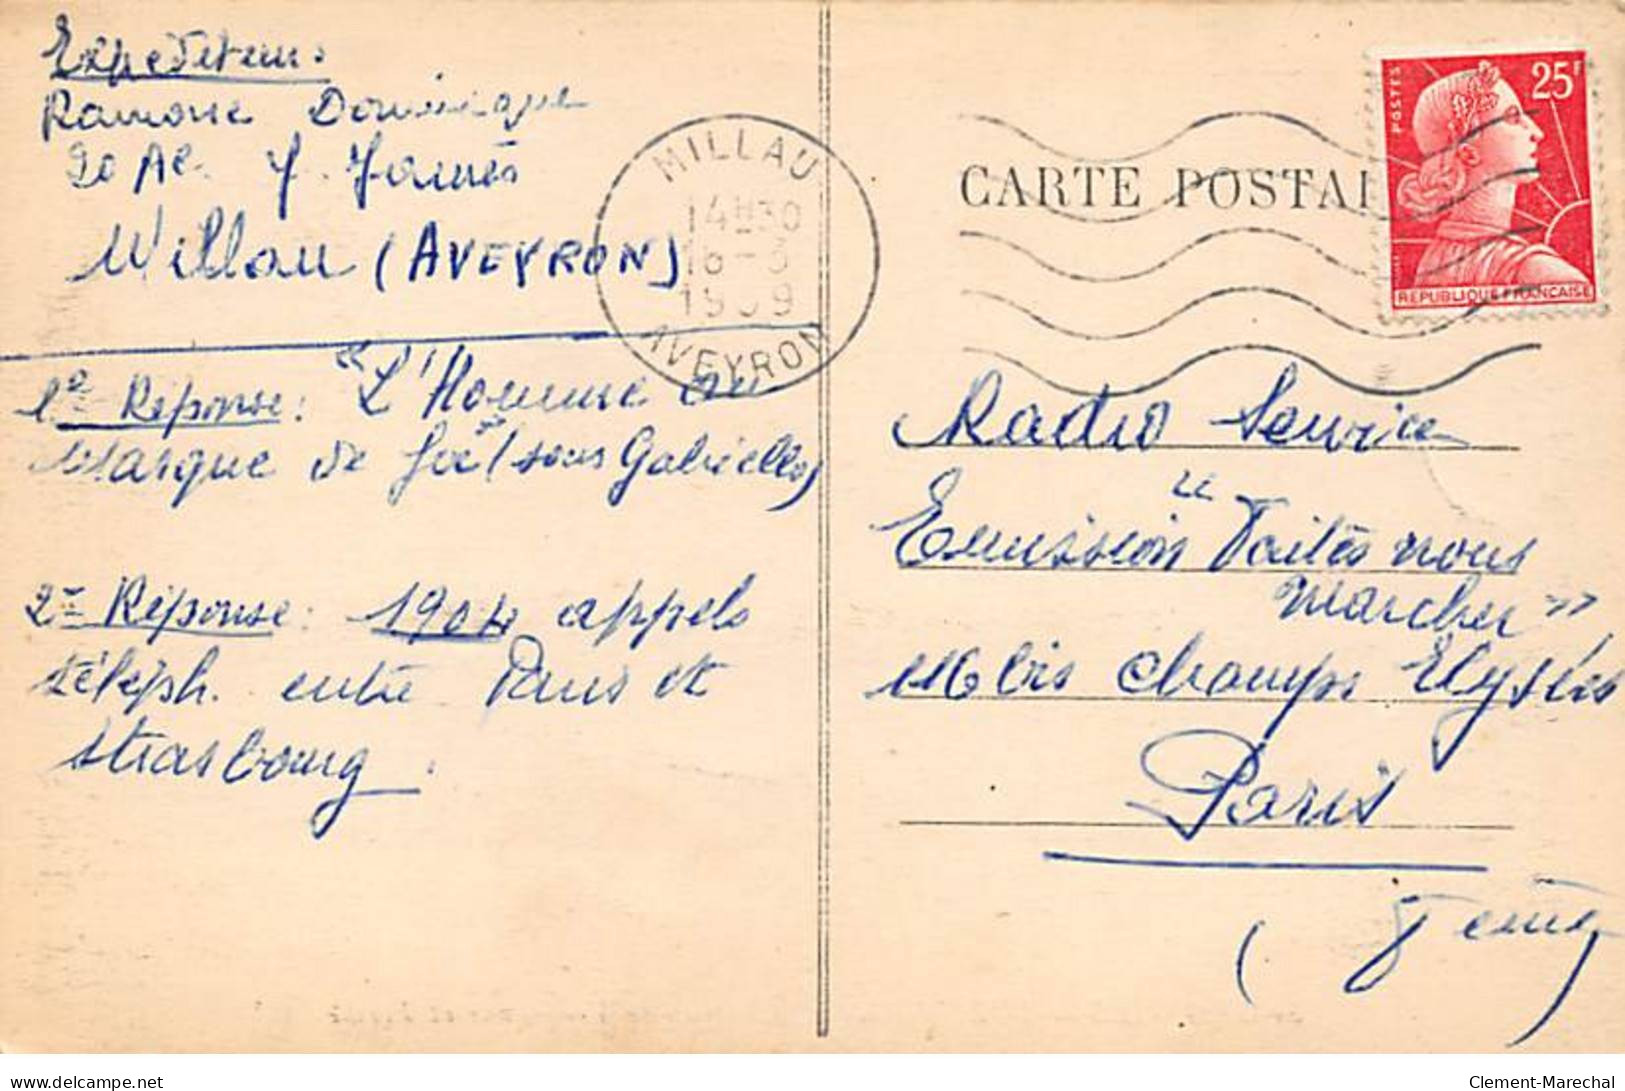 Expediteur :
Ramose Dominique
20 Ae. J. Jaurès
Millau (AVEYRON)
1e Réponse : "L'Homme au
Masque de fer" (sous Gabrielle)
2me Réponse : 1904 appels
téleph. entre Paris et
Strasbourg.
MILLAU
14H30
16-3
1959
AVEYRON
CARTE POSTAL
POSTES
25F
REPUBLIQUE FRANCAISE
Radio Service
Emission "Faites nous
marcher"
116 bis Champs Elysées
Paris
(8eme)
delcampe.net
Clement-Marechal